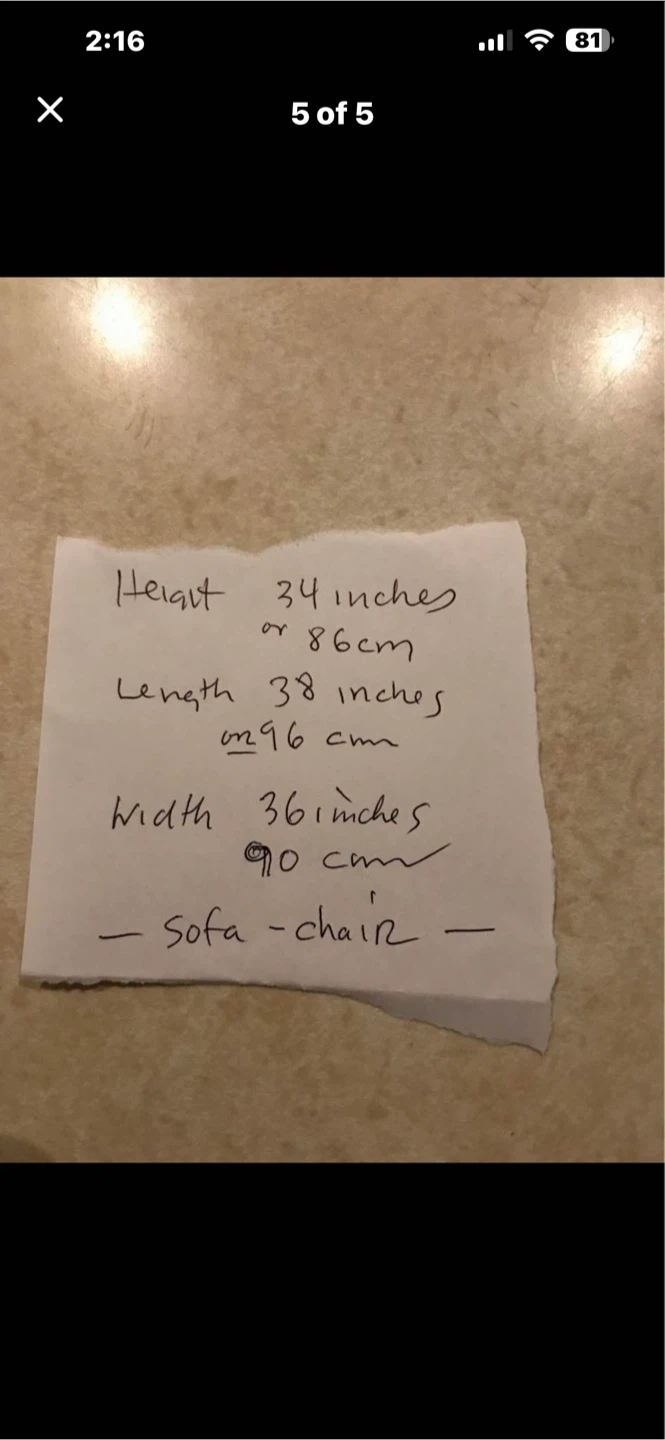 2:16
81
5 of 5
Height 34 inches
or 86cm
Length 38 inches
or 96 cm
Width 36 inches
90 cm
— Sofa - chair —